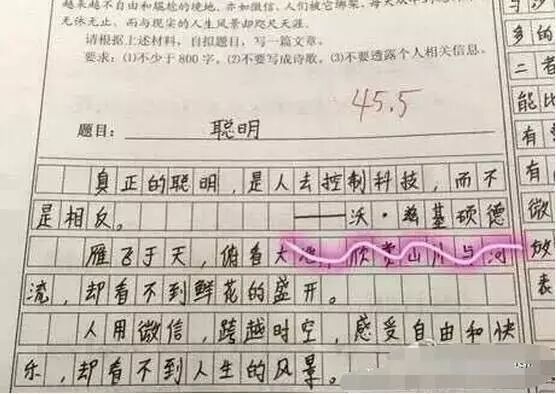 越来越不自由和尴尬的境地。亦如微信,人们被它绑架,每天
无休无止。而与现实的人生风景却咫尺天涯。
请根据上述材料,自拟题目,写一篇文章。
要求:(1)不少于800字。(2)不要写成诗歌。(3)不要透露个人相关信息。
45.5
题目: 聪明
真正的聪明,是人去控制科技,而不
是相反。 ——沃·兹基硕德
雁飞于天,俯看大地,欣赏山川与河
流,却看不到鲜花的盛开。
人用微信,跨越时空,感受自由和快
乐,却看不到人生的风景。
与
多的
二者
能比
有
有
微
放
表